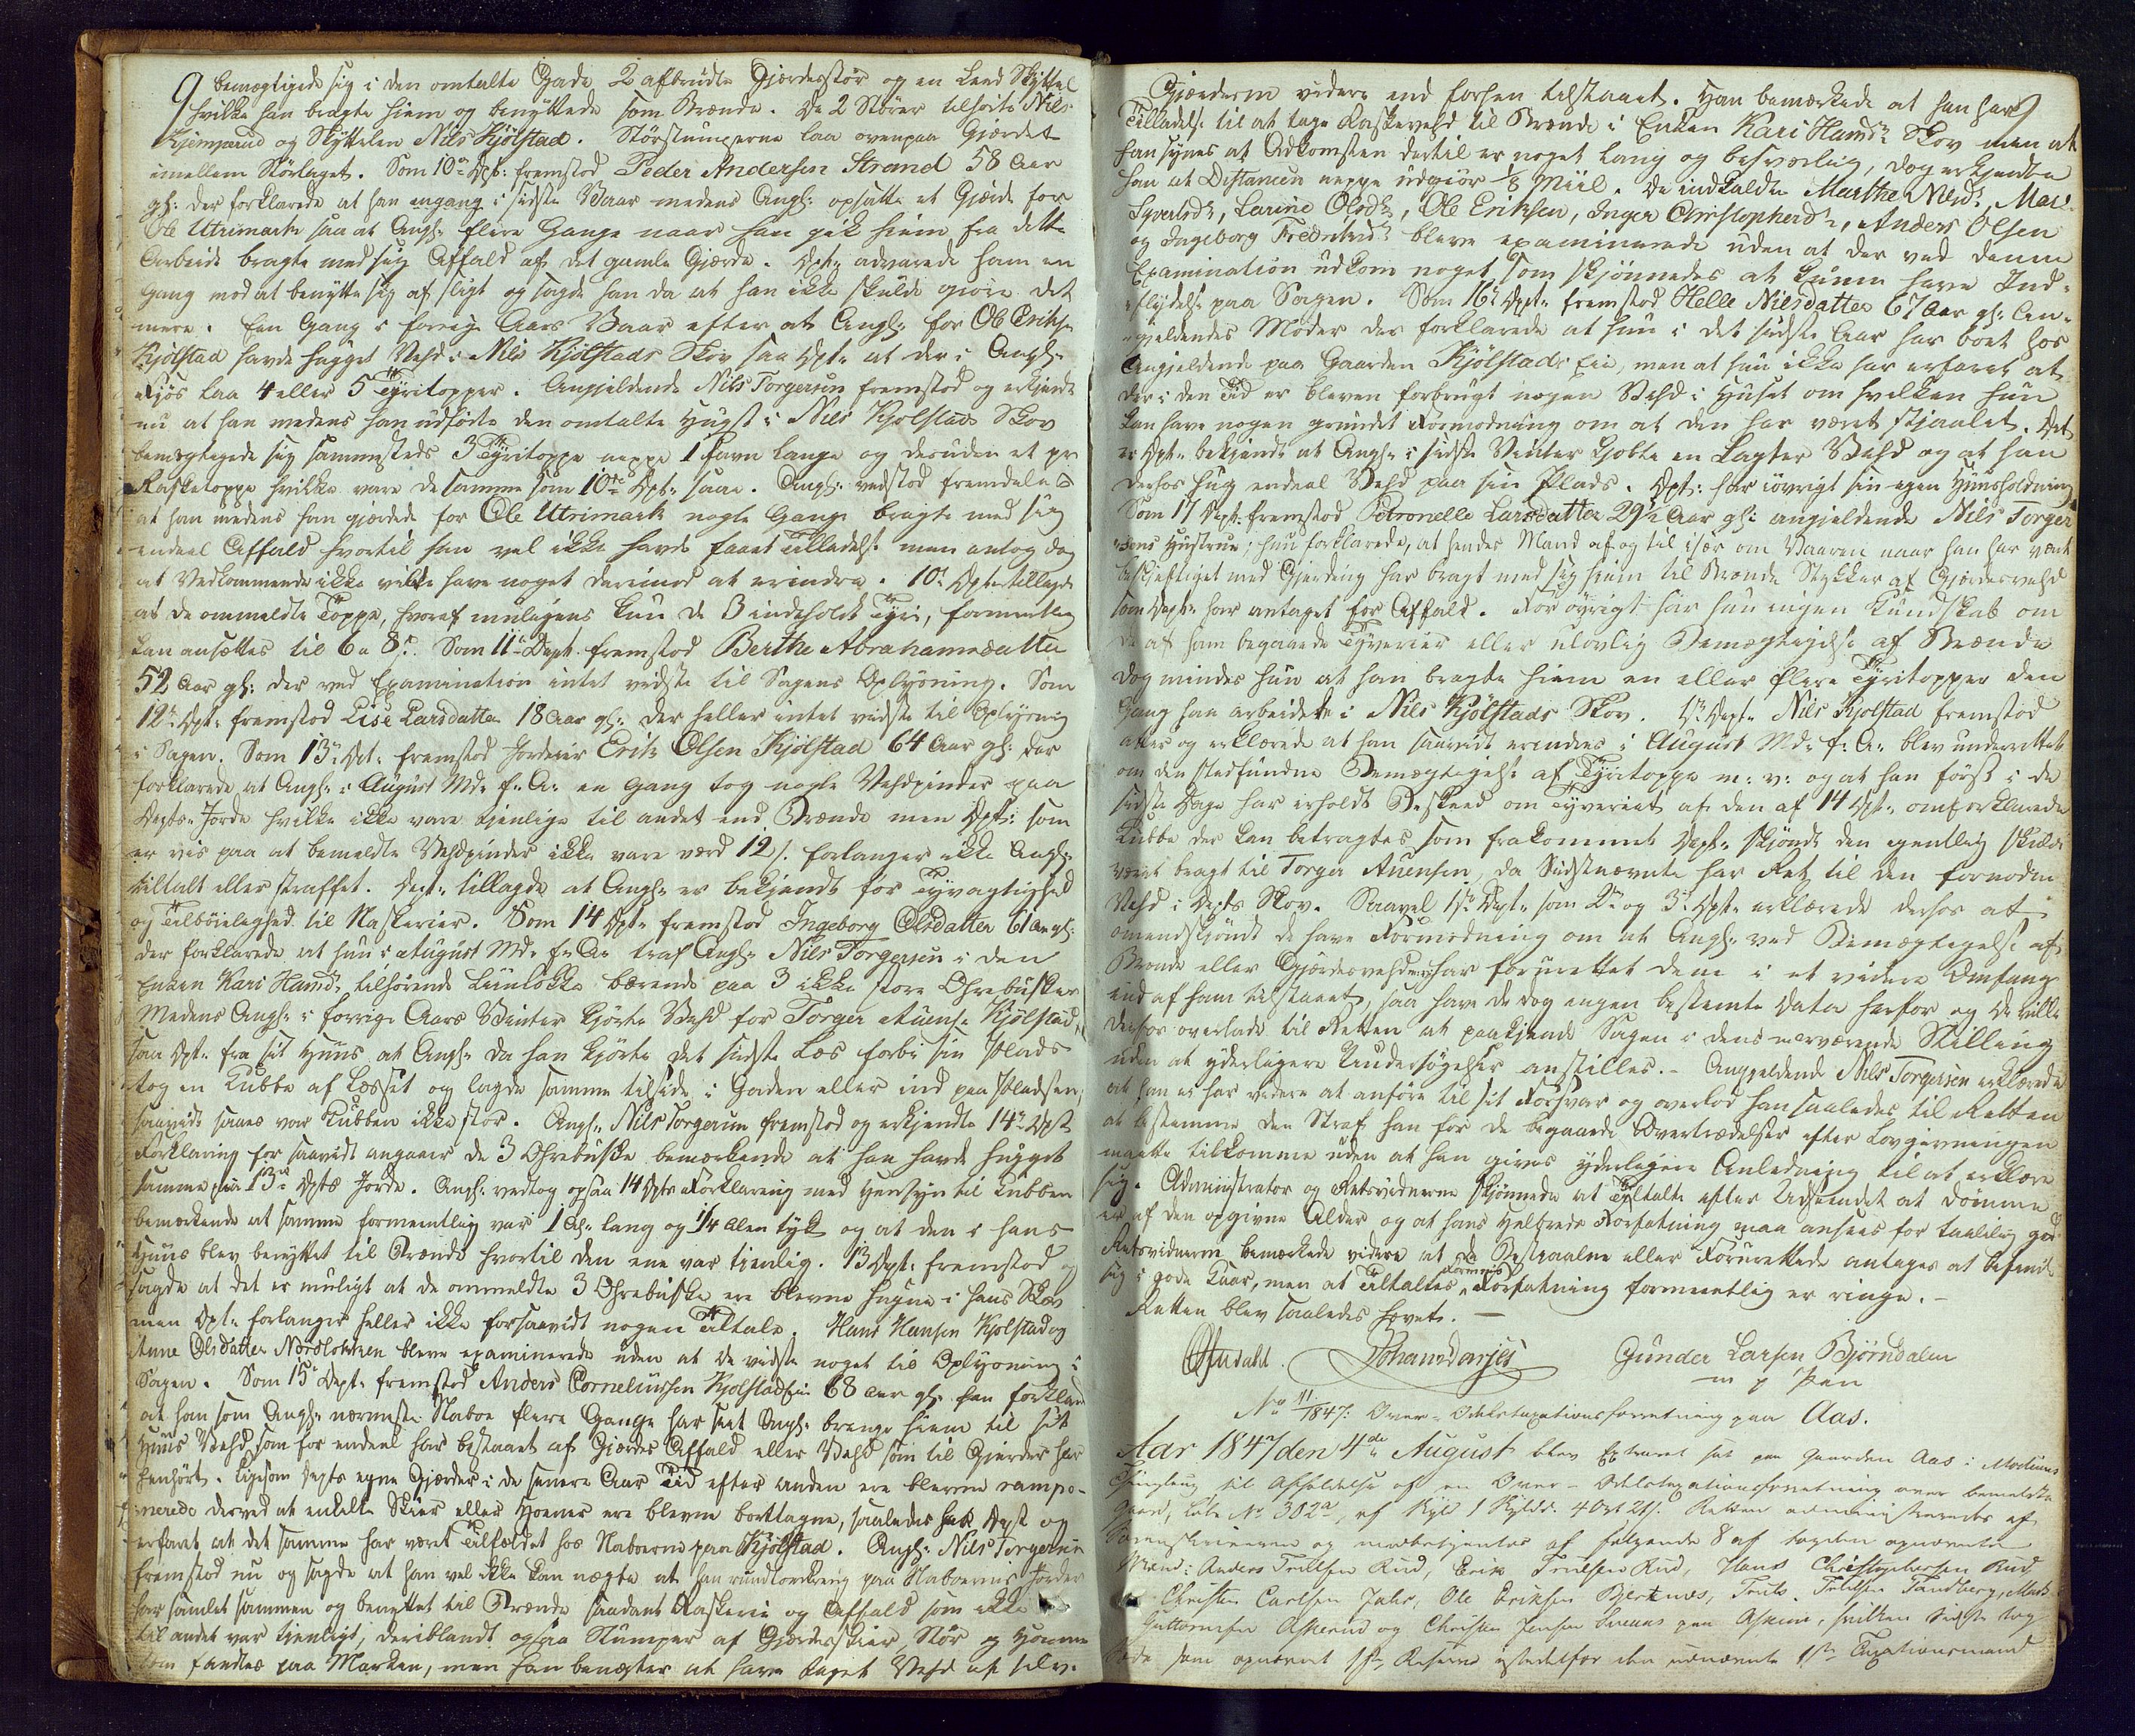 bemægtigede sig i den omtalte Gade 2 afbrudte Gjerdestør og en Leed Skyttel
hvilke han bragte hiem og benyttede som Brænde. De 2 Störer tilhørte Nils
Kjemperud og Skyttelen Nils Kjölstad. Störstumperne laa ovenpaa Gjerdet
imellem Störlaget. Som 10de Dpt: fremstod Peder Andersen Strand 58 Aar
gl: der forklarede at han engang i sidste Vaar medens Angl: opsatte et Gjerde for
Ole Utrimark saa at Angl: flere Gange naar han gik hiem fra dette
Arbeide bragte med sig Affald af det gamle Gjerde. Dpt: advarede ham en
Gang mod at benytte sig af sligt og sagde han da at han ikke skulde gjøre det
mere. Een Gang i forrige Aars Vaar efter at Angl: for Ole Eriksen
Kjölstad havde hugget Vehd i Nils Kjölstads Skov saa Dpt: at der i Angl:
Fjøs laa 4 eller 5 Tyritopper. Angjeldende Nils Torgersen fremstod og erkjendte
nu at han medens han udførte den omtalte Hugst i Nils Kjolstads Skov
bemægtigede sig sammesteds 3 Tyritoppe neppe 1 Favn lange og desuden et par
Rasketoppe hvilke vare de samme som 10de Dpt: saae. Angl: vedstod fremdeles
at han medens han gjerdede for Ole Utrimark nogle Gange bragte med sig
endeel Affald hvortil han vel ikke havde faaet Tilladelse men antog dog
at Vedkommende ikke vilde have noget derimod at erindre. 10de Dpt: tillagde
at de ommeldte Toppe, hvoraf muligens kun de 3 indeholdt Tyri, formentlig
kan ansættes til 6 a 8 s. Som 11te Dept: fremstod Berthe Abrahamsdatter
52 Aar gl: der ved Examination intet vidste til Sagens Oplysning. Som
12te Dpt: fremstod Lise Larsdatter 18 Aar gl: der heller intet vidste til Oplysning
i Sagen. Som 13de Dpt: fremstod Jordeier Erik Olsen Kjölstad 64 Aar gl: der
forklarede at Angl: i August Md: f: A: en Gang tog nogle Vehdpinder paa
Depts Jorde hvilke ikke vare tjenlige til andet end Brænde men Dpt: som
er vis paa at bemeldte Vehdpinder ikke vare værd 12 s. forlanger ikke Angl:
tiltalt eller straffet. Dept: tillagde at Angl: er bekjendt for Tyvagtighed
og Tilböielighed til Naskerier. Som 14 Dpt: fremstod Ingeborg Olsdatter 61 Aar gl:
der forklarede at hun i August Md: f: A: traf Angl: Nils Torgersen i den
Enken Kari Hansd: tilhørende Lünløkke bærende paa 3 ikke store Ohrebuske
Medens Angl: i forrige Aars Vinter kjørte Vehd for Torger Auens: Kjölstad,
saa Dpt: fra sit Huus at Angl: da han kjørte det sidste Læs forbi sin Plads
tog en Kubbe af Læsset og lagde samme tilside i Gaden eller ind paa Pladsen,
saavidt saaes var Kubben ikke stor. Angl: Nils Torgersen fremstod og erkjendte 14de Dpts
Forklaring for saavidt angaaer de 3 Ohrebuske bemærkende at han havde hugget
samme paa 13de Dpts Jorde. Angl: vedtog ogsaa 14 Dpts Forklaring med Hensyn til Kubben
bemærkende at samme formeentlig var 1 Al: lang og 1/4 Alen tyk og at den i hans
Huus blev benyttet til Brænde hvortil den ene var tjenlig. 13 Dpt: fremstod og
sagde at det er muligt at de ommeldte 3 Ohrebuske ere blevne hugne i hans Skov
men Dpt: forlanger heller ikke forsaavidt nogen Tiltale. Hans Hansen Kjolstad og
Anne Olsdatter Nordlokken bleve examinerede uden at de vidste noget til Oplysning i
Sagen. Som 15de Dept: fremstod Anders Corneliussen Kjolstadeie 68 Aar gl: han forklarede
at han som Angl: nærmeste Naboe flere Gange har seet Angl: bringe hiem til sit
Huus Vehd som for endeel har bestaaet af Gjerdes Affald eller Vehd som til Gjerder har
henhört. Ligesom Depts egne Gjerder i de senere Aar Tid efter anden ere blevne rampo-
nerede derved at enkelte Skier eller Honner ere blevne borttagne, saaledes har Dept og
erfaret at det samme har været Tilfældet hos Naboerne paa Kjölstad. Angl: Nils Torgersen
fremstod nu og sagde at han vel ikke kan nægte at han rundtomkring paa Naboernes Jorder
har samlet sammen og benyttet til Brænde saadant Raskerie og Affald som ikke
til andet var tjenligt, deriblandt ogsaa Stumper af Gjerdeskier, Stör og Honner
som fandtes paa Marken, men han benægter at have taget Vehd af selve
Gjerderne videre end forhen tilstaaet. Han bemærkede at han har
Tilladelse til at tage Raskevehd til Brænde i Enken Kari Hansd: Skov men at
han synes at Adkomsten dertil er noget lang og besværlig, dog erkjendte
han at Distancen neppe udgiør 1/8 Miil. De indkaldte Marthe Nilsd:, Mari
Syversd:, Larine Olsd:, Ole Eriksen, Inger Christophersd:, Anders Olsen
og Ingeborg Fredriksd: bleve examinerede uden at der ved denne
Examination udkom noget som skjønnedes at kunne have Ind-
flydelse paa Sagen. Som 16de Dpt: fremstod Helle Nilsdatter 67 Aar gl: An-
gjeldendes Moder der forklarede at hun i det sidste Aar har boet hos
Angjeldende paa Gaarden Kjölstads Eie, men at hun ikke har erfaret at
der i den Tid er bleven forbrugt nogen Vehd i Huset om hvilken hun
kan have nogen grundet Formodning om at den har været stjaalet. Det
er Dpt: bekjendt at Angl: i sidste Vinter kjobte en Lagter Vehd og at han
derhos hug endeel Vehd paa sin Plads. Dpt: har iøvrigt sin egen Huusholdning
Som 17 Dept: fremstod Petronelle Larsdatter 29½ Aar gl: angjeldende Nils Torger
sens Hustrue; hun forklarede, at hendes Mand af og til især om Vaaren naar han har været
beskjeftiget med Gjerding har bragt med sig hiem til Brænde Stykker af Gjerdesvehd
som Dept: har antaget for Affald. For øvrigt har hun ingen Kundskab om
de af ham begaaede Tyverier eller ulovlig Bemægtigelse af Brænde
dog mindes hun at han bragte hiem en eller flere Tyritopper den
Gang han arbeidede i Nils Kjölstads Skov. 1ste Dept: Nils Kjolstad fremstod
atter og erklærede at han saavidt erindres i August Md: f: A: blev underrettet
om den stedfundne Bemægtigelse af Tyritoppe m: v: og at han først i de
sidste Dage har erholdt Beskeed om Tyveriet af den af 14 Dpt: omforklarede
Kubbe der kan betragtes som frakommet Dept: skjøndt den egentlig skulde
været bragt til Torger Auensen, da Sidstnævnte har Ret til den fornødne
Vehd i Depts Skov. Saavel 1ste Dept: som 2de og 3de Dpt: erklærede derhos at
omendskjøndt de have Formodning om at Angl: ved Bemægtigelse af
Brænde eller Gjerdesvehd har forurettet dem i et videre Omfang
end af ham tilstaaet, saa have de dog ingen bestemte Data herfor og de ville
derfor overlade til Retten at paakjende Sagen i dens nærværende Stilling
uden at yderligere Undersøgelser anstilles. - Angjeldende Nils Torgersen erklærede
at han ei har videre at anføre til sit Forsvar og overlod han saaledes til Retten
at bestemme den Straf han for de begaaede Overtrædelser efter Lovgivningen
maatte tilkomme uden at han gives yderligere Anledning til at erklære
sig. Administrator og Retsvidnerne skjønnede at Tiltalte efter Udseendet at dømme
er af den opgivne Alder og at hans Helbreds Forfatning maa ansees for taalelig god
Retsvidnerne bemærkede videre at de Bestjaalne eller Forurettede antages at befinde
sig i gode Kaar, men at Tiltaltes Formues Forfatning formeentlig er ringe. -
Retten blev saaledes hævet. -
Gunder Larsen Björndalen
m p Pen
No 11/1847: Over-Odelstaxationsforretning paa Aas.
Aar 1847 den 4de August blev Extraret sat paa Gaarden Aas i Modums
Thinglaug til Afholdelse af en Over-Odelstaxationsforretning over bemeldte
Gaard, Løbe No 302a, af Skyld 1 Skyldd: 4 Ort 21 s. Retten administreredes af
Sorenskriveren og medbetjentes af følgende 8 af Fogden opnævnte
Mænd: Anders Trulsen Rud, Erik Trulsen Rud, Hans Christophersen Rud,
Christen Carlsen Jahr, Ole Eriksen Bjertnes, Truls Trulsen Sandberg,
Guttormsen Askerud og Christen Jensen paa Askim, hvilken sidste tog
Sæde som opnævnt 1ste Reserve istedetfor den udnævnte 1ste Taxationsmand